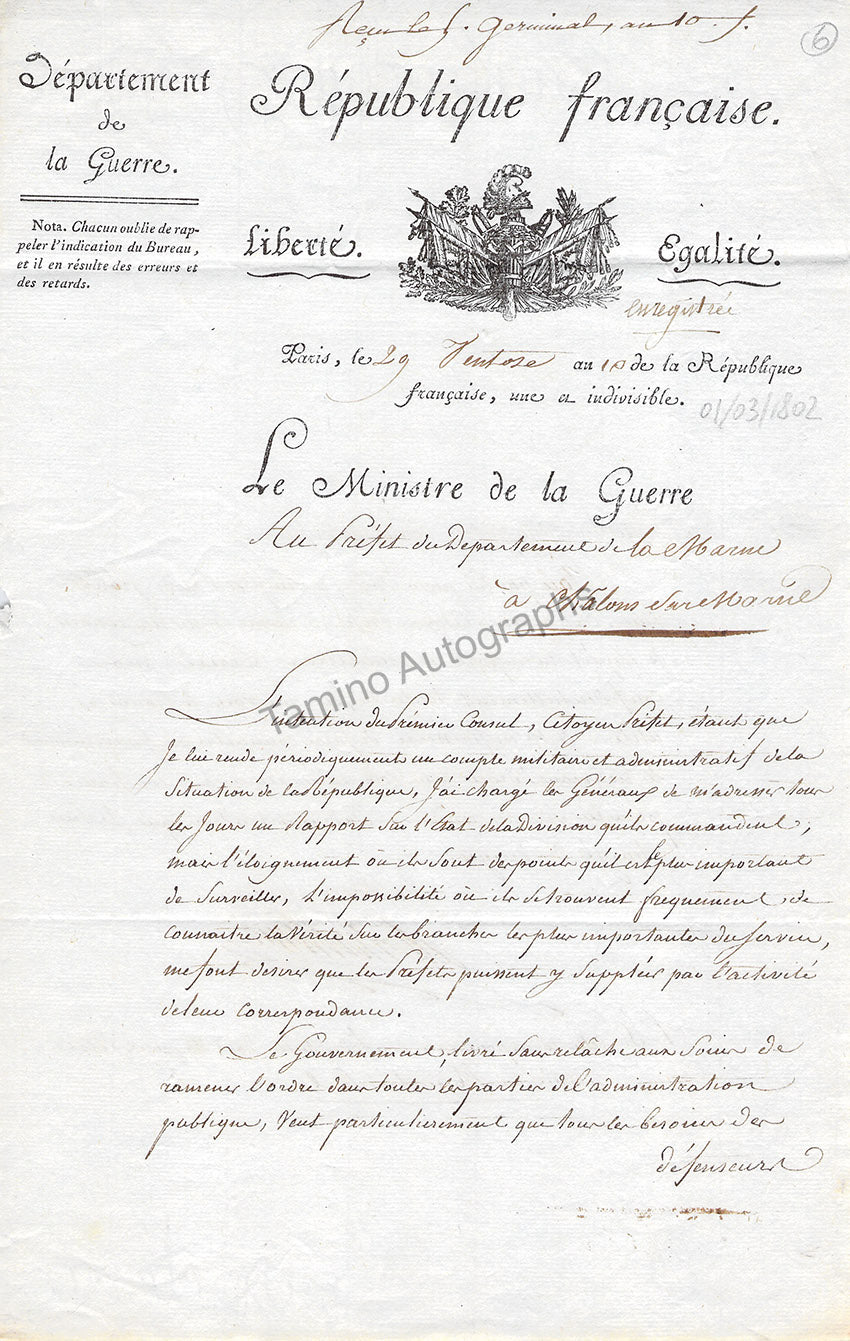 Reçu le 5. Germinal, an 10.
6
Département
de
la Guerre.
République française.
Nota. Chacun oublie de rap-
peler l'indication du Bureau,
et il en résulte des erreurs et
des retards.
Liberté.
Egalité.
enregistrée
Paris, le 29 Ventose an 10 de la République
française, une et indivisible.
01/03/1802
Le Ministre de la Guerre
Au Préfet du Departement de la Marne
à Chalons sur Marne
Tamino Autographs
L'intention du Prémier Consul, Citoyen Préfet, étant que
Je lui rende périodiquement un compte militaire et administratif de la
Situation de la République, J'ai chargé les Généraux de m'adresser tous
les Jours un Rapport sur l'Etat de la Division qu'ils commandent;
mais l'éloignement où ils sont des points qu'il est le plus important
de surveiller, l'impossibilité où ils se trouvent frequement de
connaitre la Vérité sur les branches les plus importantes du service,
me font desirer que les Préfets puissent y suppléer par l'activité
de leur correspondance.
Le Gouvernement, livré sans relâche aux soins de
ramener l'ordre dans toutes les parties de l'administration
publique, Veut particulierement que tous les besoins des
défenseurs